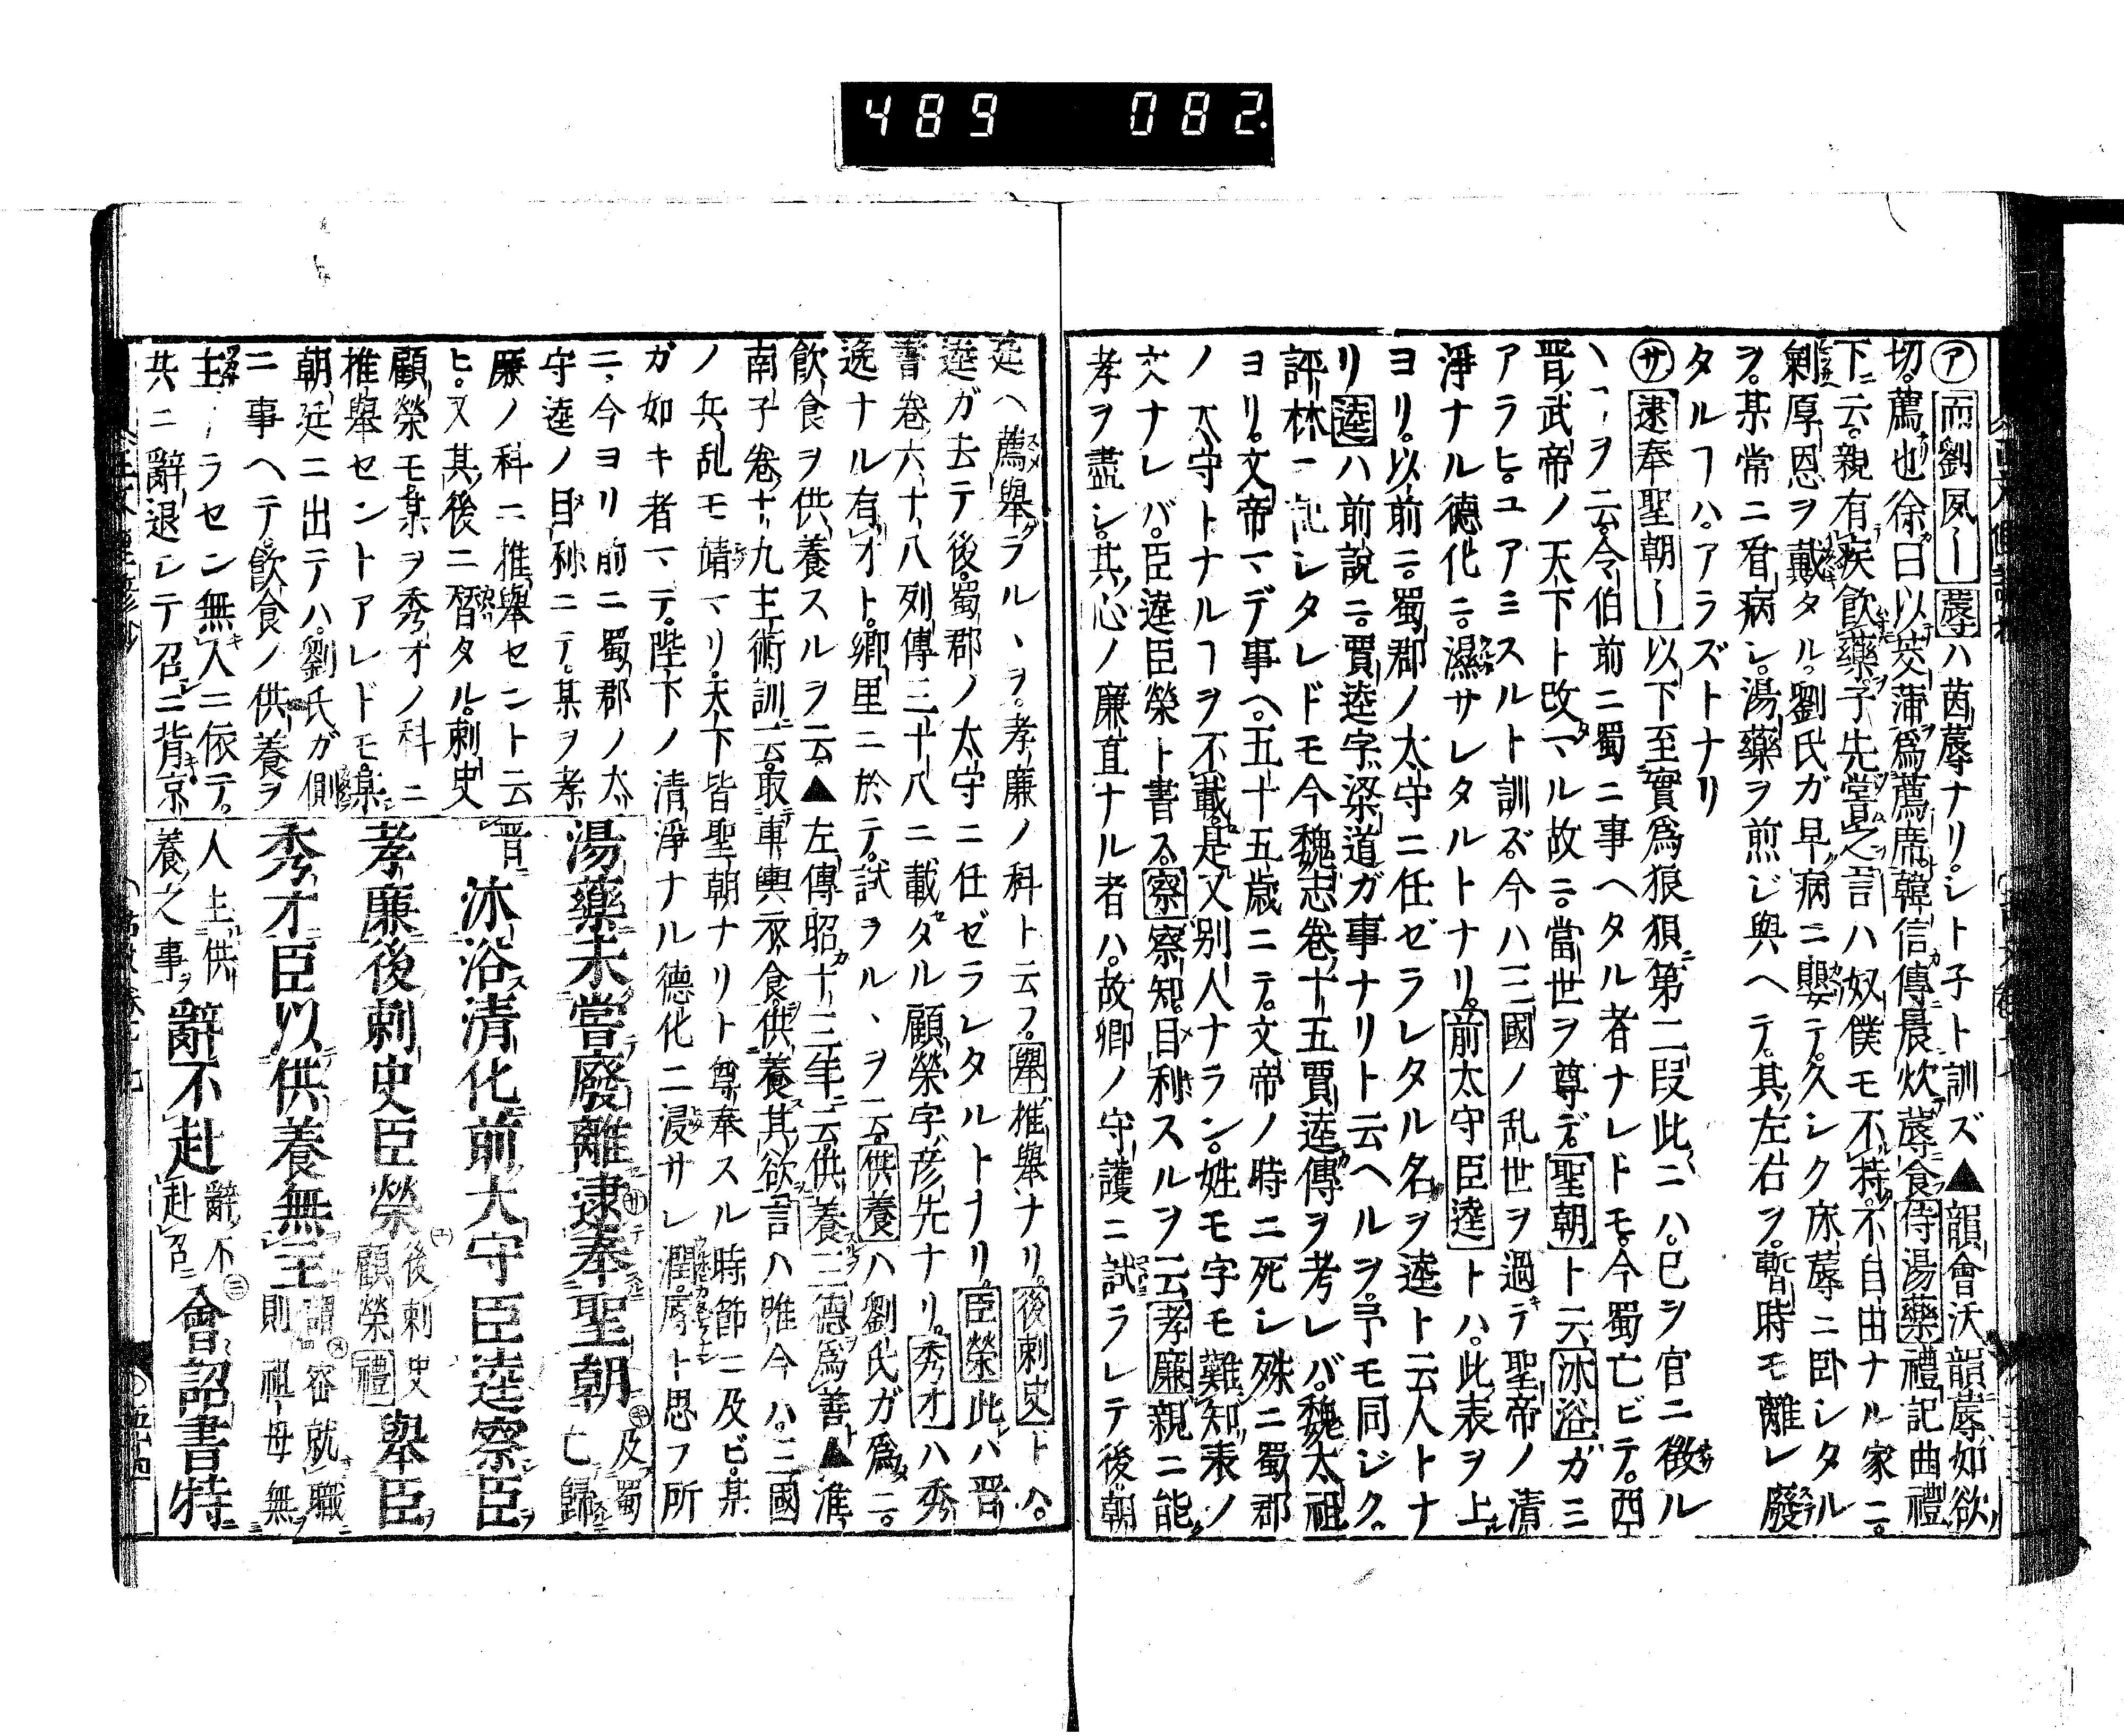 489 082.
㋐而劉夙〡蓐ハ茵蓐ナリ。シト子ト訓ズ▲韻會沃韻蓐如欲
切。薦也徐曰以茭蒲爲薦席。韓信傳晨炊蓐食侍湯藥禮記曲禮
下云。親有疾飲藥子先嘗之言ハ奴僕モ不持。不自由ナル家ニ。
剰厚恩ヲ戴タル。劉氏ガ早病ニ嬰テ。久シク床蓐ニ卧シタル
ヲ。某常ニ看病シ。湯藥ヲ煎ジ與ヘテ。其左右ヲ。暫時モ離レ廢
タルヿハ。アラズトナリ
㋚逮奉聖朝〡以下至實爲狼狽第二段此ニハ。已ヲ官ニ徴ル
ヽヿヲ云。令伯前ニ蜀ニ事ヘタル者ナレドモ。今蜀亡ビテ。西
晋武帝ノ天下ト改マル故ニ。當世ヲ尊デ。聖朝ト云沐浴ガミ
アラヒ。ユアミスルト訓ズ。今ハ三國ノ乱世ヲ過テ聖帝ノ清
淨ナル德化ニ。濕サレタルトナリ。前太守臣逵トハ。此表ヲ上
ヨリ。以前ニ。蜀郡ノ太守ニ任ゼラレタル名ヲ逵ト云人トナ
リ逵ハ前說ニ。賈逵字梁道ガ事ナリト云ヘルヲ。予モ同ジク。
評林ニ記シタレドモ今魏志卷十五賈逵傳ヲ考レバ。魏太祖
ヨリ。文帝マデ事ヘ。五十五歲ニテ。文帝ノ時ニ死シ殊ニ蜀郡
ノ太守トナルヿヲ不載。是又別人ナラン。姓モ字モ難知表ノ
文ナレバ。臣逵臣榮ト書ス。察察知。目利スルヲ云孝廉親ニ能
孝ヲ盡シ。其心ノ廉直ナル者ハ。故卿ノ守護ニ試ラレテ後。朝
延ヘ薦舉ラルヽヲ。孝廉ノ科ト云フ。舉推舉ナリ。後刺史トハ。
逵ガ去テ後。蜀郡ノ太守ニ任ゼラレタルトナリ。臣榮此ハ晋
書卷六十八列傳三十八ニ載タル顧榮字彦先ナリ。秀才ハ秀
逸ナル有才ト。郷里ニ於テ。試ヲルヽヲ云供養ハ劉氏ガ爲ニ。
飲食ヲ供養スルヲ云▲左傳昭十三年云供養三德爲善▲淮
南子卷十九主術訓云。取車輿衣食。供養其欲言ハ唯今ハ。三國
ノ兵乱モ靖マリ。天下皆聖朝ナリト尊奉スル時節ニ及ビ。某
ガ如キ者マデ。陛下ノ清淨ナル德化ニ浸サレ潤。辱ト思フ所
ニ、今ヨリ前ニ蜀郡ノ太
守逵ノ目利ニテ。某ヲ孝
廉ノ科ニ推舉セント云
ヒ。又其後ニ暦タル。刺史
顧榮モ某ヲ秀才ノ科ニ
推舉セントアレドモ。某
朝廷ニ出テハ。劉氏ガ側
ニ事ヘテ。飲食ノ供養ヲ
主ラセン無人ニ依テ。
共ニ辭退シテ召ニ背京
湯藥未嘗廢離㋚逮奉聖朝㋖及蜀亡歸
晋沐浴清化前太守臣逵察臣
孝廉後刺史臣榮㋴後刺史顧榮禮舉臣
秀才臣以供養無主謂㋱容就職則祖母無
人主供養之事辭不赴辭不赴召㋯會詔書特